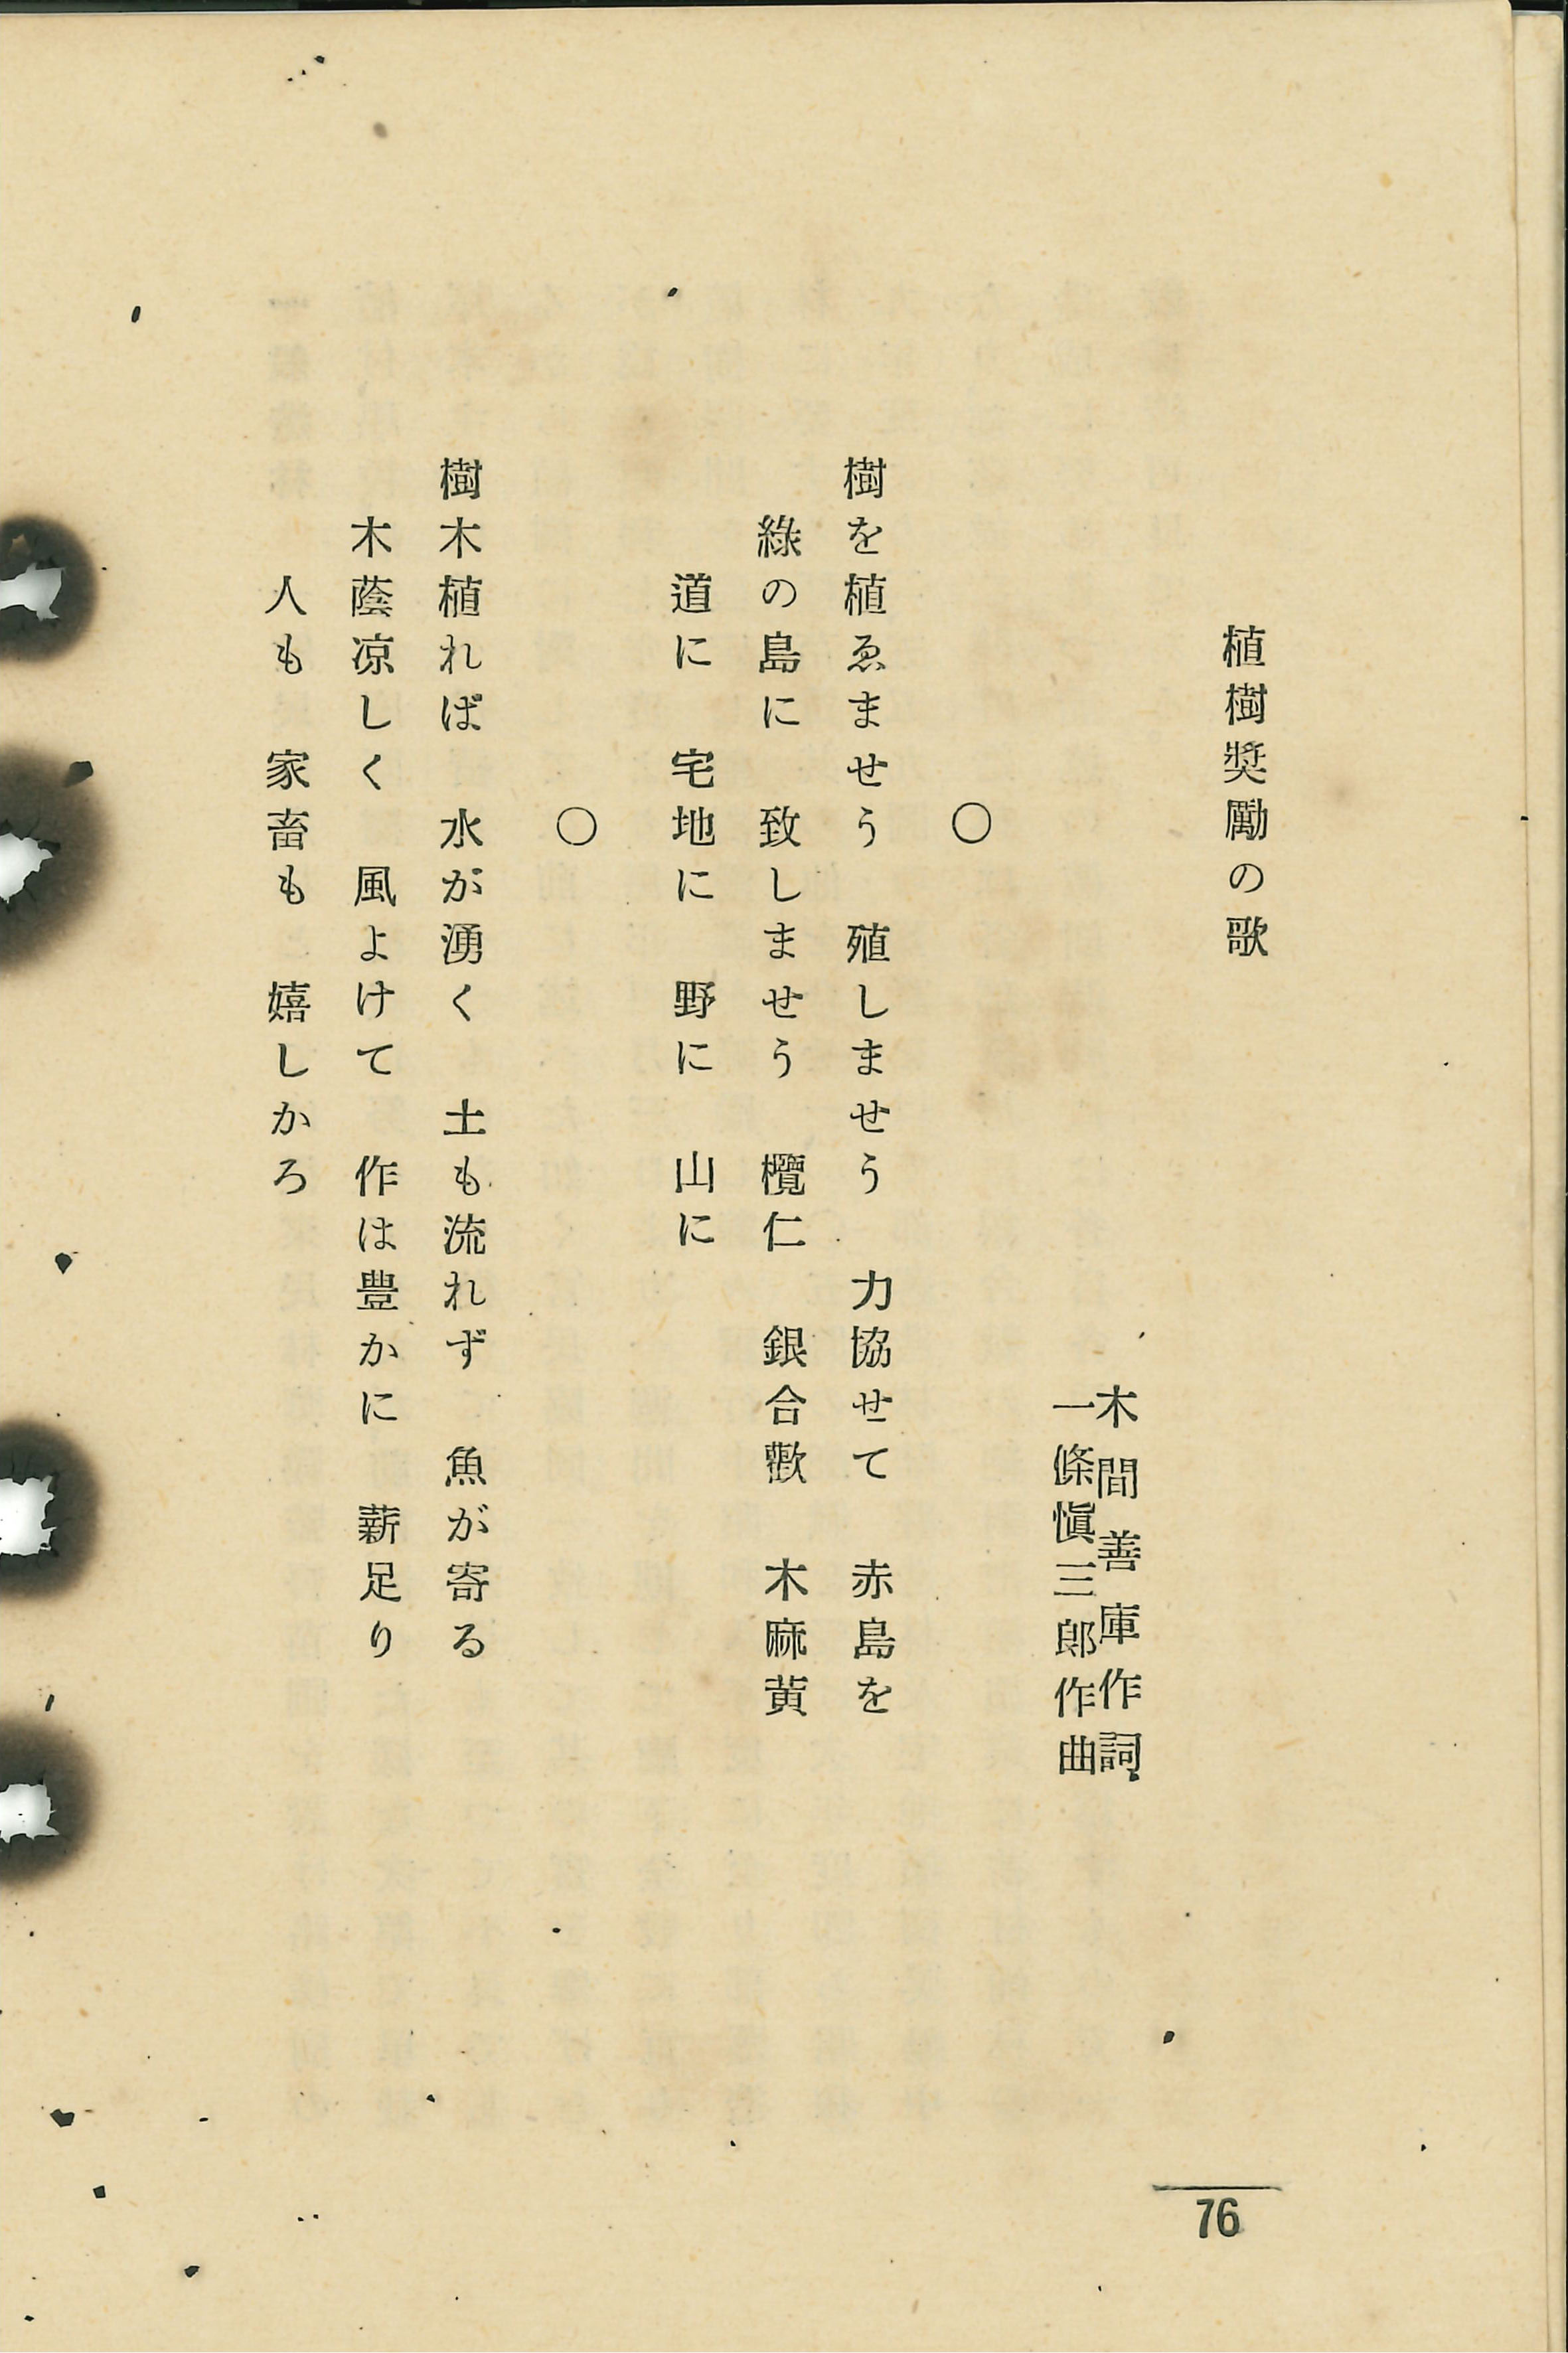 植樹奬勵の歌
木間善庫作詞
一條愼三郎作曲
○
樹を植ゑませう　殖しませう　力協せて　赤島を
綠の島に　致しませう　欖仁　銀合歡　木麻黄
道に　宅地に　野に　山に
○
樹木植れば　水が湧く　土も流れず　魚が寄る
木蔭凉しく　風よけて　作は豊かに　薪足り
人も　家畜も　嬉しかろ
76